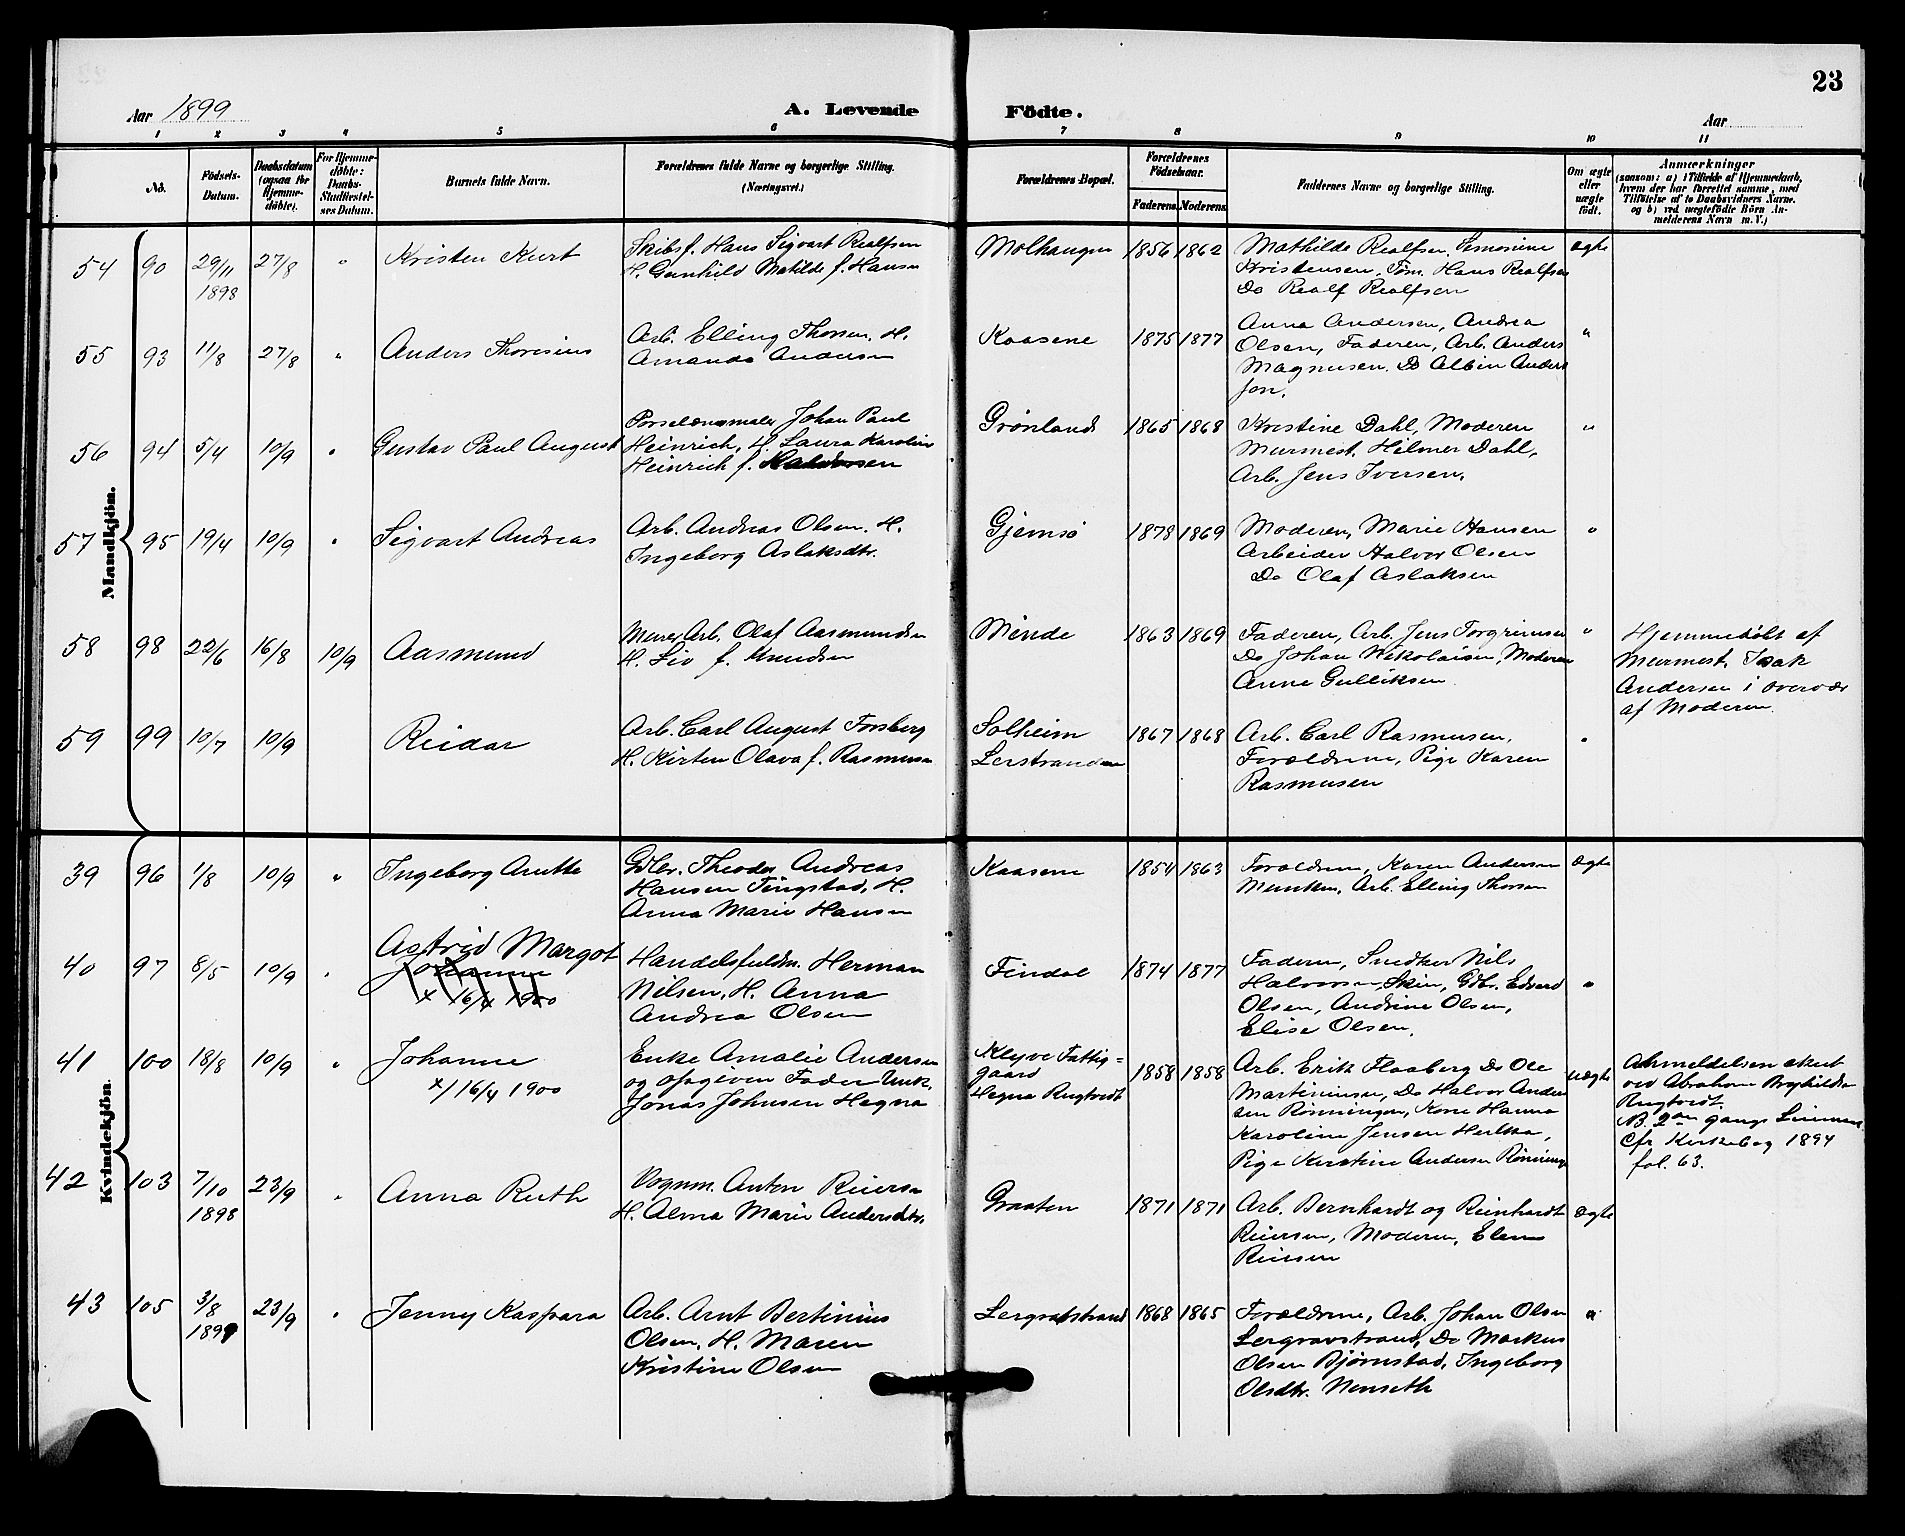 23
Aar 1899
A. Levende
Födte.
Aar
1 2 3 4 5 6 7 8 9 10 11
No.
Födsels-
Datum.
Daabsdatum
(ogsaa for
Hjemme-
döbte).
For Hjemme-
döbte:
Daabs-
Stadfæstel-
ses Datum.
Barnets fulde Navn.
Forældrenes fulde Navne og borgerlige Stilling.
(Næringsvei.)
Forældrenes Bopæl.
Forældrenes
Födselsaar.
Faderens. Moderens.
Faddernes Navne og borgerlige Stilling.
Om ægte
eller
uægte
født.
Anmærkninger
(saasom: a) i Tilfælde af Hjemmedaab,
hvem der har forrettet samme, med
Tilföielse af to Daabsvidners Navne.
og b) ved uægtefödte Börn An-
melderens Navn m. V.)
Mandkjön.
54 90 29/11 1898 27/8 "
Kristen Kurt
Skibsf. Hans Sigvart Realfsen
H. Gunhild Matilde f. Hansen
Molhaugen 1856 1862
Mathilde Realfsen,
Kristensen, Tøm. Hans Realfsen
Do Realf Realfsen
Ægte
55 93 11/8 27/8 "
Anders Thoresius
Arb. Elling Thorsen. H.
Amanda Andersen
Kaasene 1875 1877
Anna Andersen, Andrea
Olsen, Faderen, Arb. Anders
Magnusen. Do Albin Anders
sen.
"
56 94 5/4 10/9 "
Gustav Paul August
Porselænsmaler Johan Paul
Heinrich, H. Laura Karoline
Heinrich f.
Grønland 1865 1868
Kristine Dahl, Moderen
Murmest. Hilmer Dahl,
Arb. Jens Iversen.
"
57 95 19/4 10/9 "
Sigvart Andreas
Arb. Andreas Olsen. H.
Ingeborg Aslaksdtr.
Gjemsø 1878 1869
Moderen, Marie Hansen
Arbeider Halvor Olsen
Do Olaf Aslaksen
"
58 98 22/6 16/8 10/9
Aasmund
Murer Arb. Olaf Aasmundsen
H. Liv f. Knudsen
Mende 1863 1869
Faderen, Arb. Jens Torgrimsen
Do Johan Nikolaisen, Moderen
Anne Gulliksen
"
Hjemmedøbt af
Murmest. Isak
Andersen i overvær
af Moderen.
59 99 10/7 10/9
Reidar
Arb. Carl August Forsberg
H. Kirsten Olava f. Rasmusen
Solheim
Lerstranden
1867 1868
Arb. Carl Rasmusen,
Forældrene, Pige Karen
Rasmusen
"
Kvindekjön.
39 96 1/8 10/9 "
Ingeborg Anette
Gdbr. Theodor Andreas
Hansen Tingstad, H.
Anna Marie Hansen
Kaasene 1854 1863
Forældrene, Karen Andersen
Munken, Arb. Elling Thorsen
Ægte
40 97 8/5 10/9 "
Astrid Margot
Johanne
x 16/4 1900
Handelsfuldm. Herman
Nilsen, H. Anna
Andrea Olsen
Findal 1874 1877
Faderen, Snedker Nils
Halvorsen, Skien, Gdbr. Edvard
Olsen, Andrine Olsen,
Elise Olsen.
"
41 100 18/8 10/9 "
Johanne
x/16/4 1900
Enke Amalie Andersen
og opgiven Fader Unk.
Jonas Johnsen Hegna
Klyve Fattig=
gaard
Hegna Rugtvedt
1858 1858
Arb. Erik Flaaberg Do Ole
Martiniusen, Do Halvor Ander
sen Rønningen, Kone Hanna
Karoline Jensen Herkka,
Pige Kirstine Andersen Rønningen
Uægte
Anmeldelsen skeet
ved Abraham Brynhildsen
Rugtvedt.
NB. 2den gangs
Cfr Kirkebog 1894
fol. 63.
42 103 7/10 1898 23/9 "
Anna Ruth
Vognm. Anton Reiersen
H. Alma Marie Andersdtr.
Graaten 1871 1871
Arb. Bernhardt og Reinhardt
Reiersen, Moderen, Elen
Reiersen
Ægte
43 105 3/8 1899 23/9 "
Jenny Kaspara
Arb. Arnt Bertinius
Olsen, H. Maren
Kristine Olsen
Lergravstrand 1868 1865
Forældrene, Arb. Johan Olsen
Lergravstrand, Do Markus
Olsen Bjørnstad, Ingeborg
Olsdtr. Nenseth
"